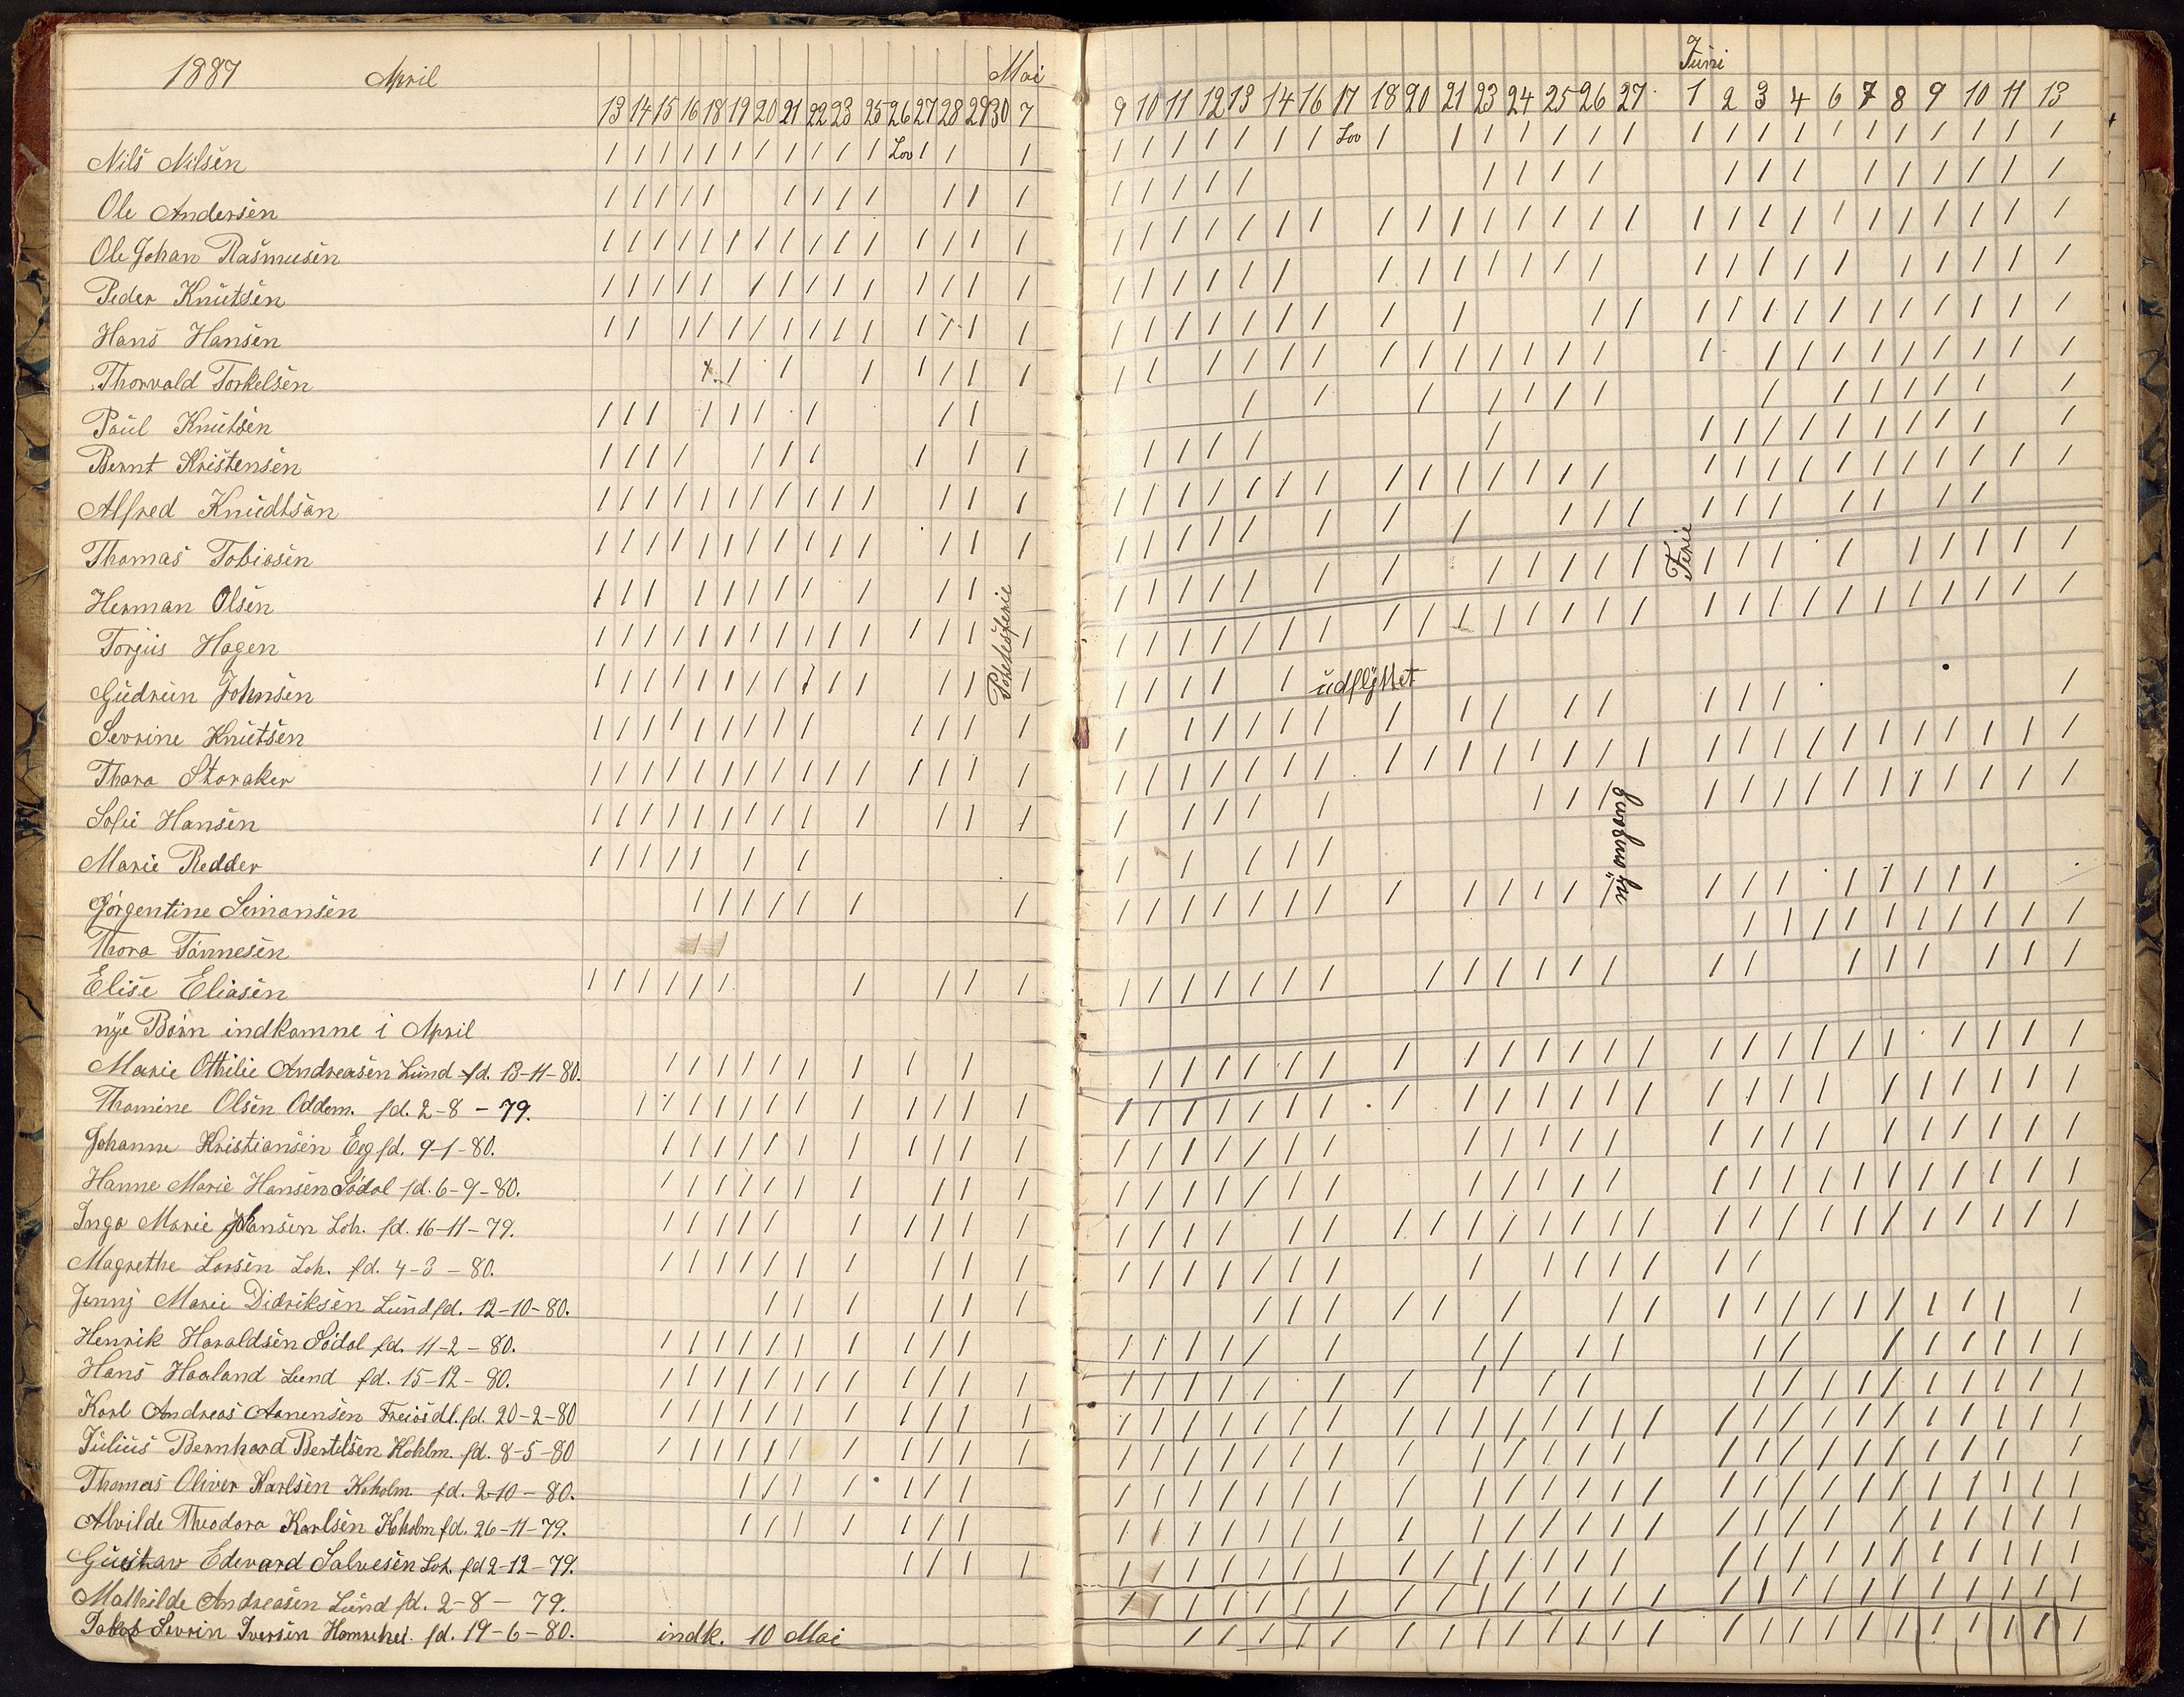 1887 April Mai
13 14 15 16 18 19 20 21 22 23 25 26 27 28 29 30 7
Nils Nilsen Lov
Ole Andersen
Ole Johan Rasmusen
Peder Knutsen
Hans Hansen
Thorvald Torkelsen
Paul Knutsen
Bernt Kristensen
Alfred Knudtsån
Thomas Tobiasen
Herman Olsen
Torjus Hagen
Gudrun Johnsen
Sevrine Knutsen
Thora Storaker
Sofie Hansen
Marie Redder
Jörgentine Simonsen
Thora Tönnesen
Elise Eliasen
nye Börn indkomne i April
Marie Othilie Andreasen Lund fd. 13-11-80.
Thomine Olsen Oddern. fd. 2-8-79.
Johanne Kristiansen Eeg fd. 9-1-80.
Hanne Marie Hansen Södal fd. 6-9-80.
Inga Marie Hansen Loh. fd. 16-11-79.
Magrethe Larsen Loh. fd. 4-3-80.
Jenny Marie Didriksen Lund fd. 12-10-80.
Henrik Haraldsen Södal fd. 11-2-80.
Hans Haaland Lund fd. 15-12-80.
Karl Andreas Aanensen fd. 20-2-80
Julius Bernhard Bertilsen Koholm. fd. 8-5-80
Thomas Oliver Karlsen Koholm fd. 2-10-80.
Alvilde Theodora Karlsen Koholm fd. 26-11-79.
Gustav Edevard Salvesen Loh. fd 2-12-79.
Mathilde Andreasen Lund fd. 2-8-79.
Jakob Sevrin Iversen fd. 19-6-80. indk. 10 Mai
Potetesferie
Juni
9 10 11 12 13 14 16 17 18 20 21 23 24 25 26 27 1 2 3 4 6 7 8 9 10 11 13
Lov
Ferie
udflyttet